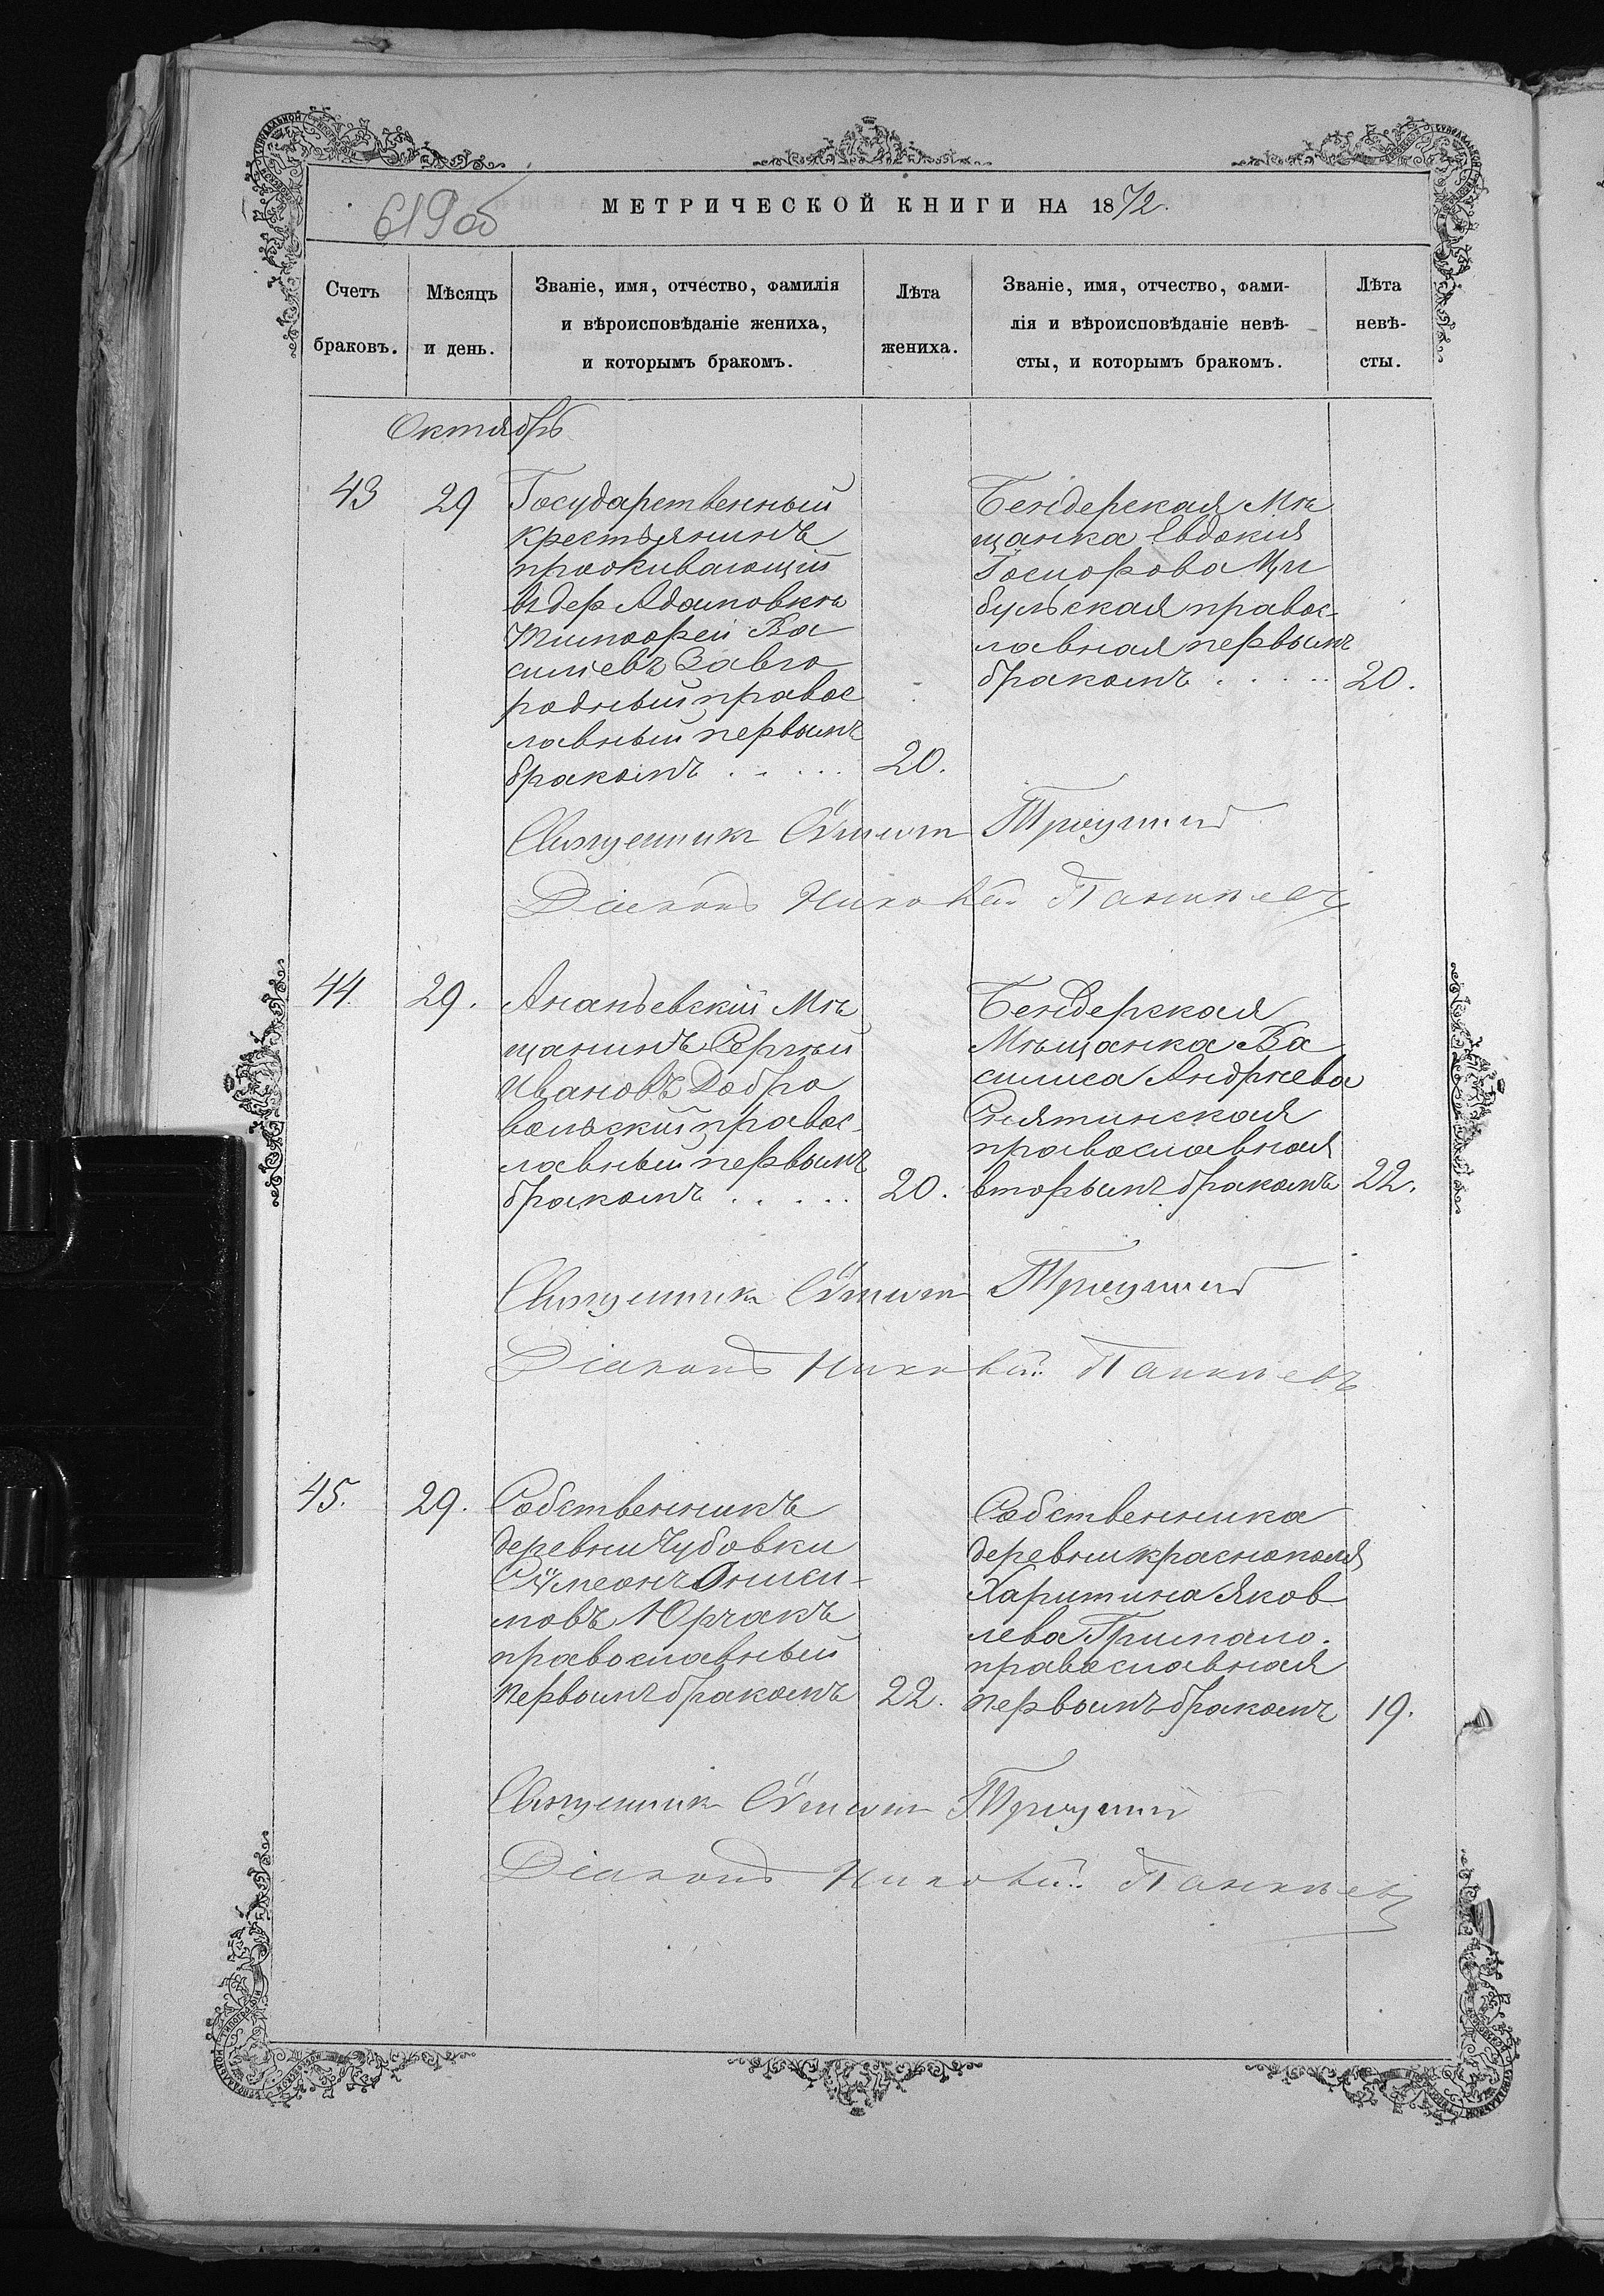 619 об
МЕТРИЧЕСКОЙ КНИГИ НА 1872.
Счетъ браковъ.
Мѣсяцъ и день.
Званіе, имя, отчество, фамилія
и вѣроисповѣданіе жениха,
и которымъ бракомъ.
Лѣта
жениха.
Званіе, имя, отчество, фами-
лія и вѣроисповѣданіе невѣ-
сты, и которымъ бракомъ.
Лѣта
невѣ-
сты.
Октябрь
43
29
Государственный
крестьянинъ
проживающій
въ дер Адамовкѣ
Тимофей Ва
сильевъ Завго
родный правос
лавный первымъ
бракомъ . . . . .
20.
Бендерская Мѣ
щанка Евдокия
Госифова Цы
бульская правос-
лавная первымъ
бракомъ . . . . .
20.
Священникъ Трауцкій
Діаконъ Николай
44.
29.
Ананьевскій Мѣ
щанинъ Сергѣй
Ивановъ Добро
вольскій правос-
лавный первымъ
бракомъ . . . . .
20.
Бендерская
Мѣщанка Ва
силиса Андрѣева
Снятинская
православная
вторымъ бракомъ
22.
Священникъ
Діаконъ Николай
45.
29.
Собственникъ
деревни Чубовки
СѵмеонъОниси-
мовъ Юрчакъ
православный
первымъ бракомъ
22.
Собственника
деревни краснополя
Харитина Яков
лева
православная
первымъ бракомъ
19.
Священникъ
Діаконъ Николай